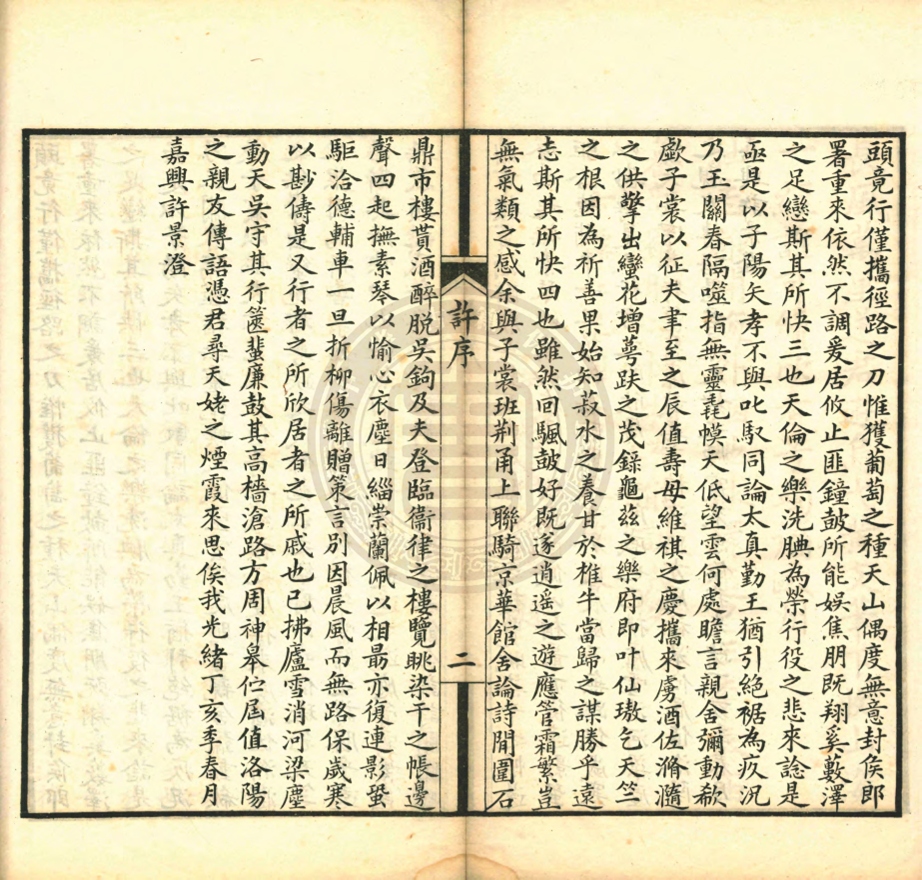 頭竟行僅攜徑路之刀惟獲葡萄之種天山偶度無意封侯郎
署重來依然不調爰居攸止匪鐘鼓所能娛焦朋既翔奚藪澤
之足戀斯其所快三也天倫之樂洗腆為榮行役之悲來諗是
亟是以子陽矢孝不與叱馭同論太真勤王猶引絕裾為疚況
乃玉關春隔噬指無靈毳幙天低望雲何處瞻言親舍彌動欷
歔子裳以征夫聿至之辰值壽母維祺之慶攜來虜酒佐滫瀡
之供擎出蠻花增萼跗之茂錄龜茲之樂府即叶仙璈乞天竺
之根因為祈善果始知菽水之養甘於椎牛當歸之謀勝乎遠
志斯其所快四也雖然回飄鼓好既遂逍遥之遊應管霜繁豈
無氣類之感余與子裳班荆甬上聯騎京華館舍論詩閒圍石
許序
二
鼎市樓貰酒醉脫吳鉤及夫登臨衞律之樓覽眺染干之帳邊
聲四起撫素琴以愉心衣塵日緇崇蘭佩以相最亦復連影蛩
駏洽德輔車一旦折柳傷離贈策言別因晨風而無路保歲寒
以尠儔是又行者之所欣居者之所戚也已拂廬雪消河梁塵
動天吳守其行篋蜚廉鼓其高檣滄路方周神皋伫屆值洛陽
之親友傳語憑君尋天姥之煙霞來思俟我光緒丁亥季春月
嘉興許景澄